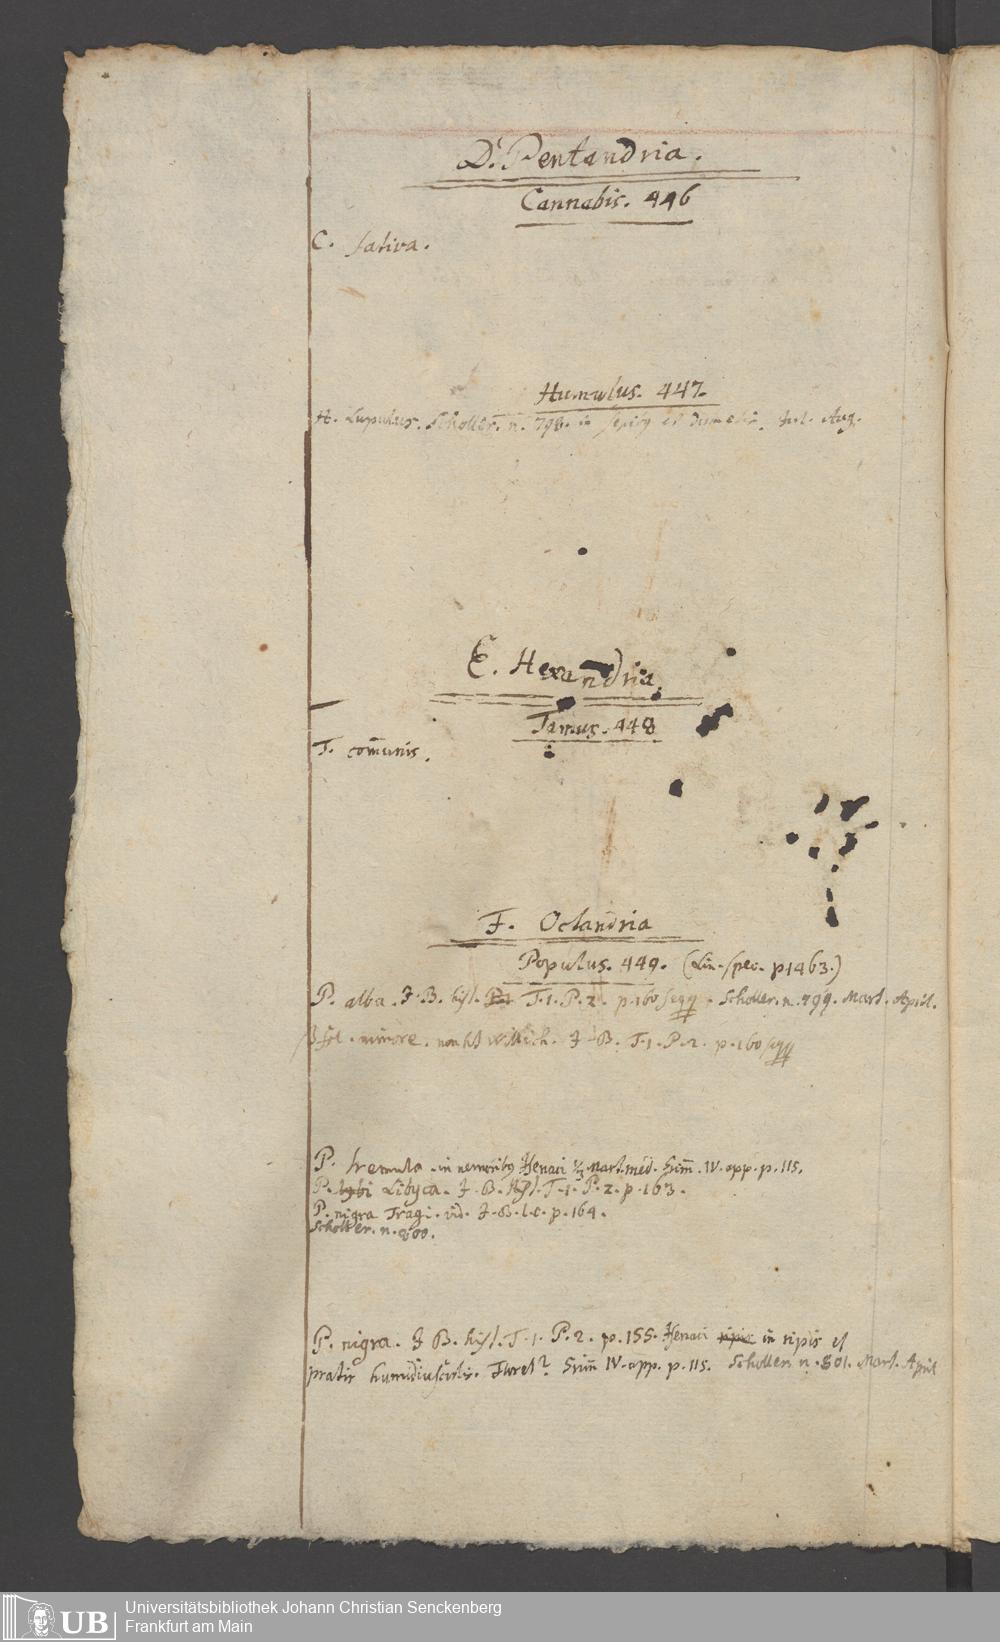 D. Pentandria.
Cannabis. 446
C. sativa.
Humulus. 447.
H. Lupulus. Scholler. n. 798. in sepibg et dumetis. Jul. Aug.
E. Hexandria.
Tamus. 448
T. com̄unis.
F. Octandria
Populus. 449. (Lin. spec. p 1463.)
P. alba. J. B. hist. T. 1. P. 2. p. 160 seqq. Scholler. n. 799. Mart. April.
β fol. minore. J. B. T. 1. P. 2. p. 160 seqq
P. tremula. in nemoribg Henaci Mart. med. Grim̄. IV. app. p. 115.
P. lybi Libyca. J. B. hist. T. 1. P. 2. p. 163.
P. nigra Tragi. vid. J. B. l. c. p. 164.
Scholler. n. 800.
P. nigra. J B. hist. T. 1. P. 2. p. 155. Henaci ripis in ripis et
pratis humidiusculis. Floret? Grim̄ IV. app. p. 115. Scholler. n. 801. Mart. April
UB
Universitätsbibliothek Johann Christian Senckenberg
Frankfurt am Main